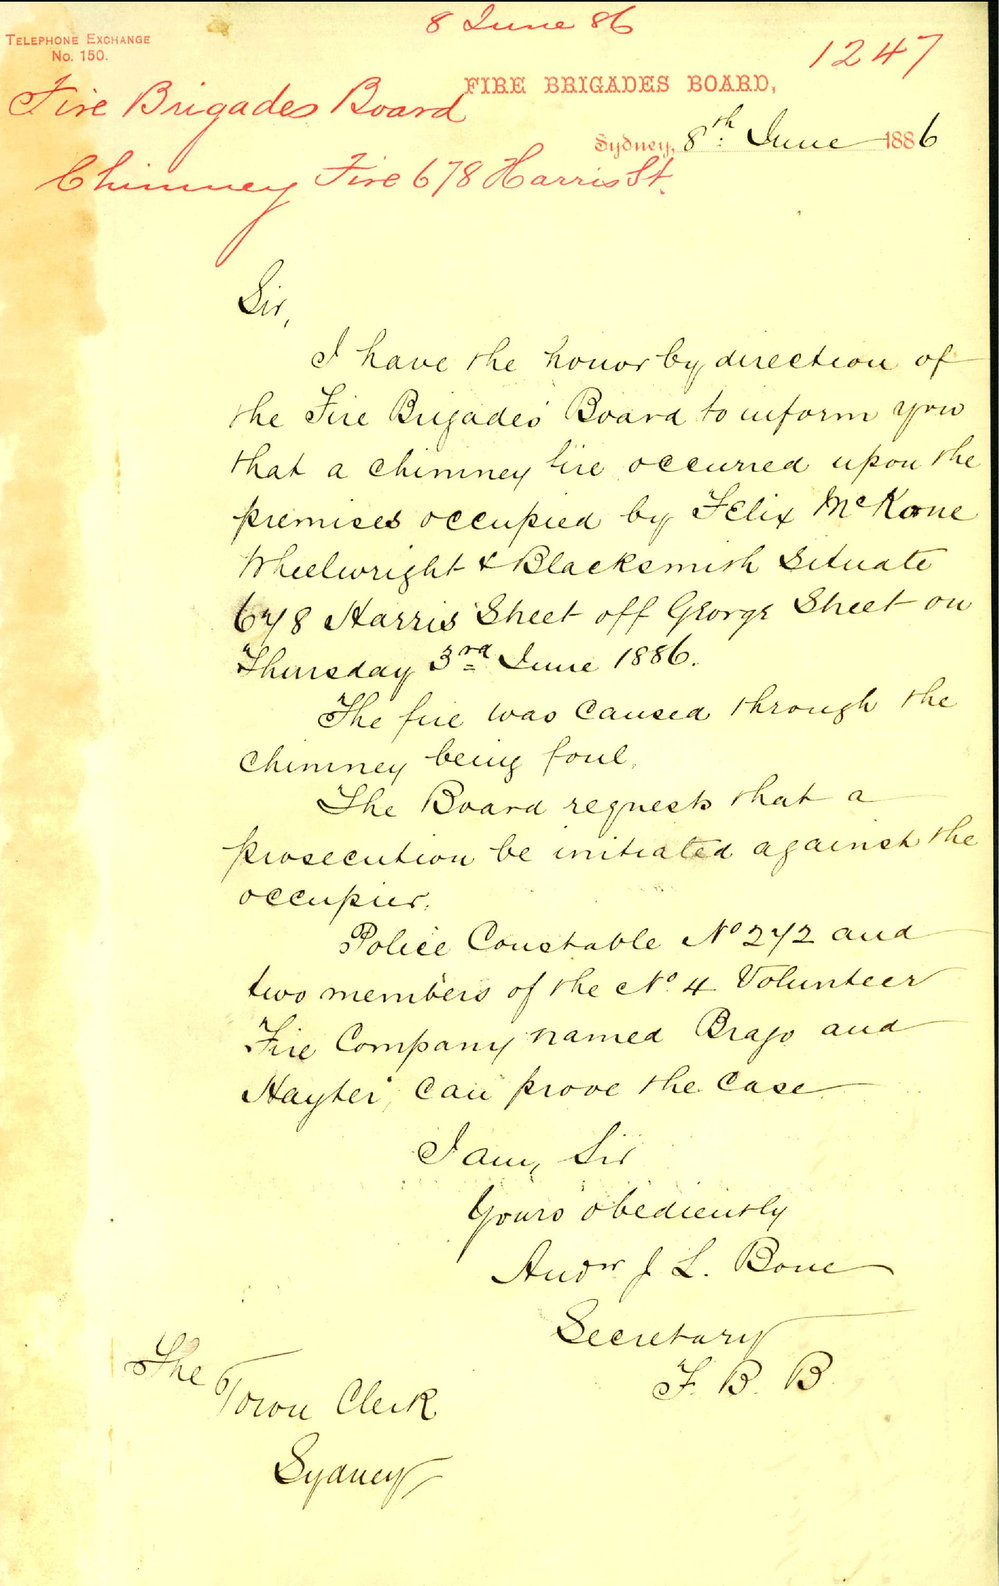 8 June 86
TELEPHONE EXCHANGE
No. 150.
1247
FIRE BRIGADES BOARD,
Fire Brigades Board
Sydney, 8th June 1886
Chimney Fire 678 Harris St.
Sir,
I have the honor by direction of
the Fire Brigades Board to inform you
that a chimney fire occurred upon the
premises occupied by Felix McKone
Wheelwright & Blacksmith Situate
678 Harris Street off George Street on
Thursday 3rd June 1886.
The fire was caused through the
chimney being foul.
The Board requests that a
prosecution be initiated against the
occupier.
Police Constable No 272 and
two members of the No. 4 Volunteer
Fire Company named and
Hayter, can prove the case
I am, Sir
Yours obediently
Andw J. L. Bone
Secretary
F. B. B.
The
Town Clerk
Sydney